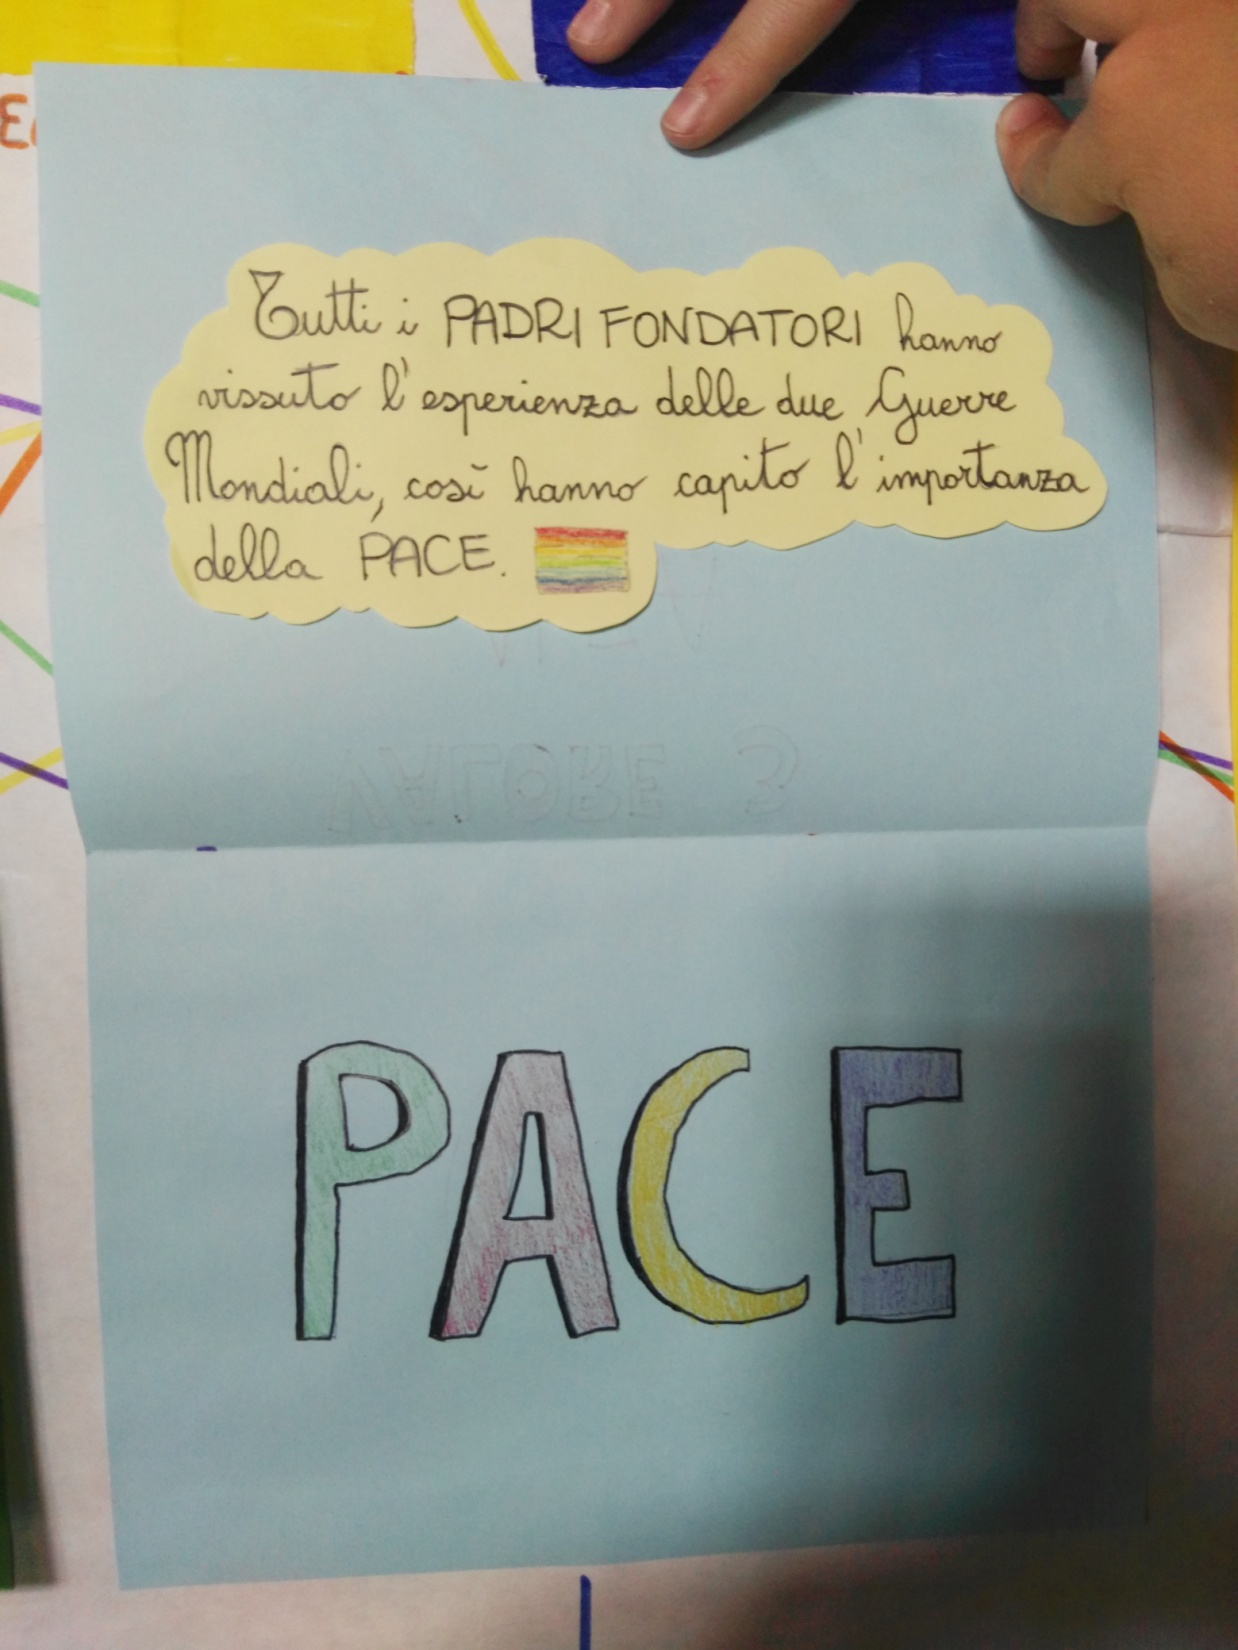 Tutti i PADRI FONDATORI hanno
vissuto l'esperienza delle due Guerre
Mondiali, così hanno capito l'importanza
della PACE.
VALORE 3
PACE